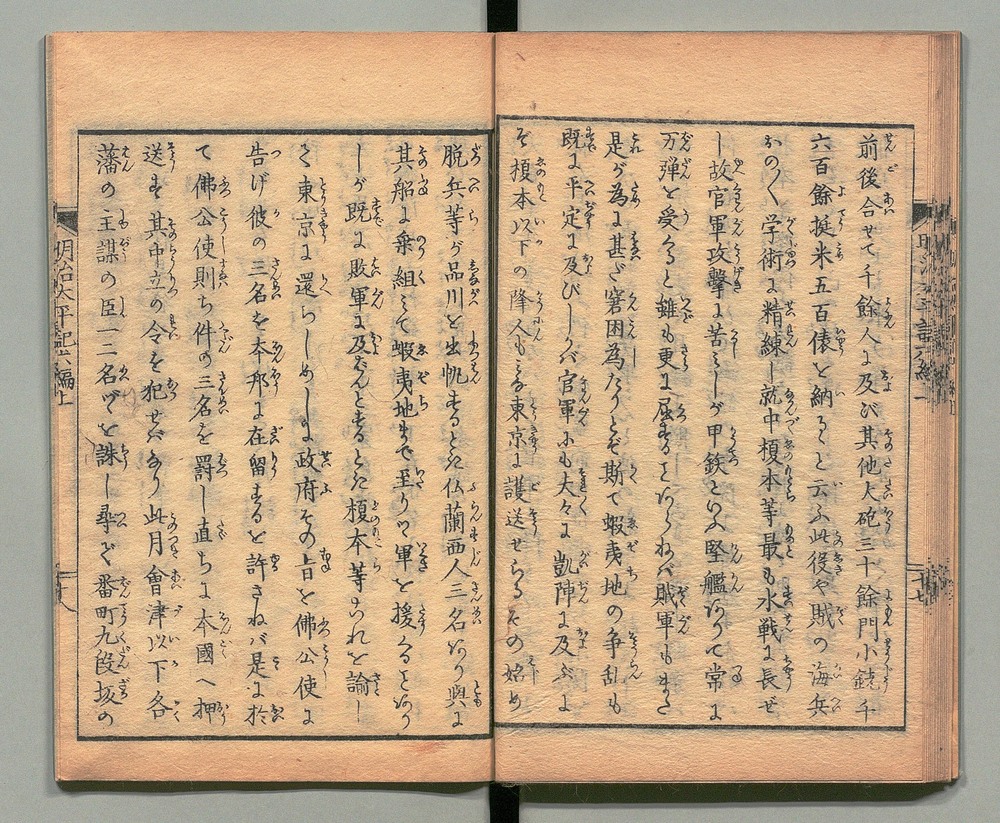 前後合せて千餘人に及び其他大砲三十餘門小銃千
六百餘挺米五百俵を納ると云ふ此役や賊の海兵
おの〳〵学術に精練し就中榎本等最も水戦に長ぜ
し故官軍攻撃に苦みしが甲鉄といふ堅艦ありて常に
万弾を受ると雖も更に屈することあらねバ賊軍もまた
是が為に甚だ窘困為たりとぞ斯て蝦夷地の争乱も
既に平定に及びしかバ官軍にも大々に凱陣に及ぶに
ぞ榎本以下の降人もみな東京に護送せらるその始め
脱兵等が品川を出帆するとき仏蘭西人三名あり與に
其船に乗組みて蝦夷地まで至りて軍を援くることあり
しが既に敗軍に及ばんとするとき榎本等これを諭し
て東京に還らしめしに政府その旨を佛公使に
告げ彼の三名を本邦に在留するを許さねバ是に於
て佛公使則ち件の三名を罰し直ちに本國へ押
送す其中立の令を犯せバなり此月會津以下各
藩の主謀の臣一二名づゝを誅し尋で番町九段坂の
明治太平記六編上